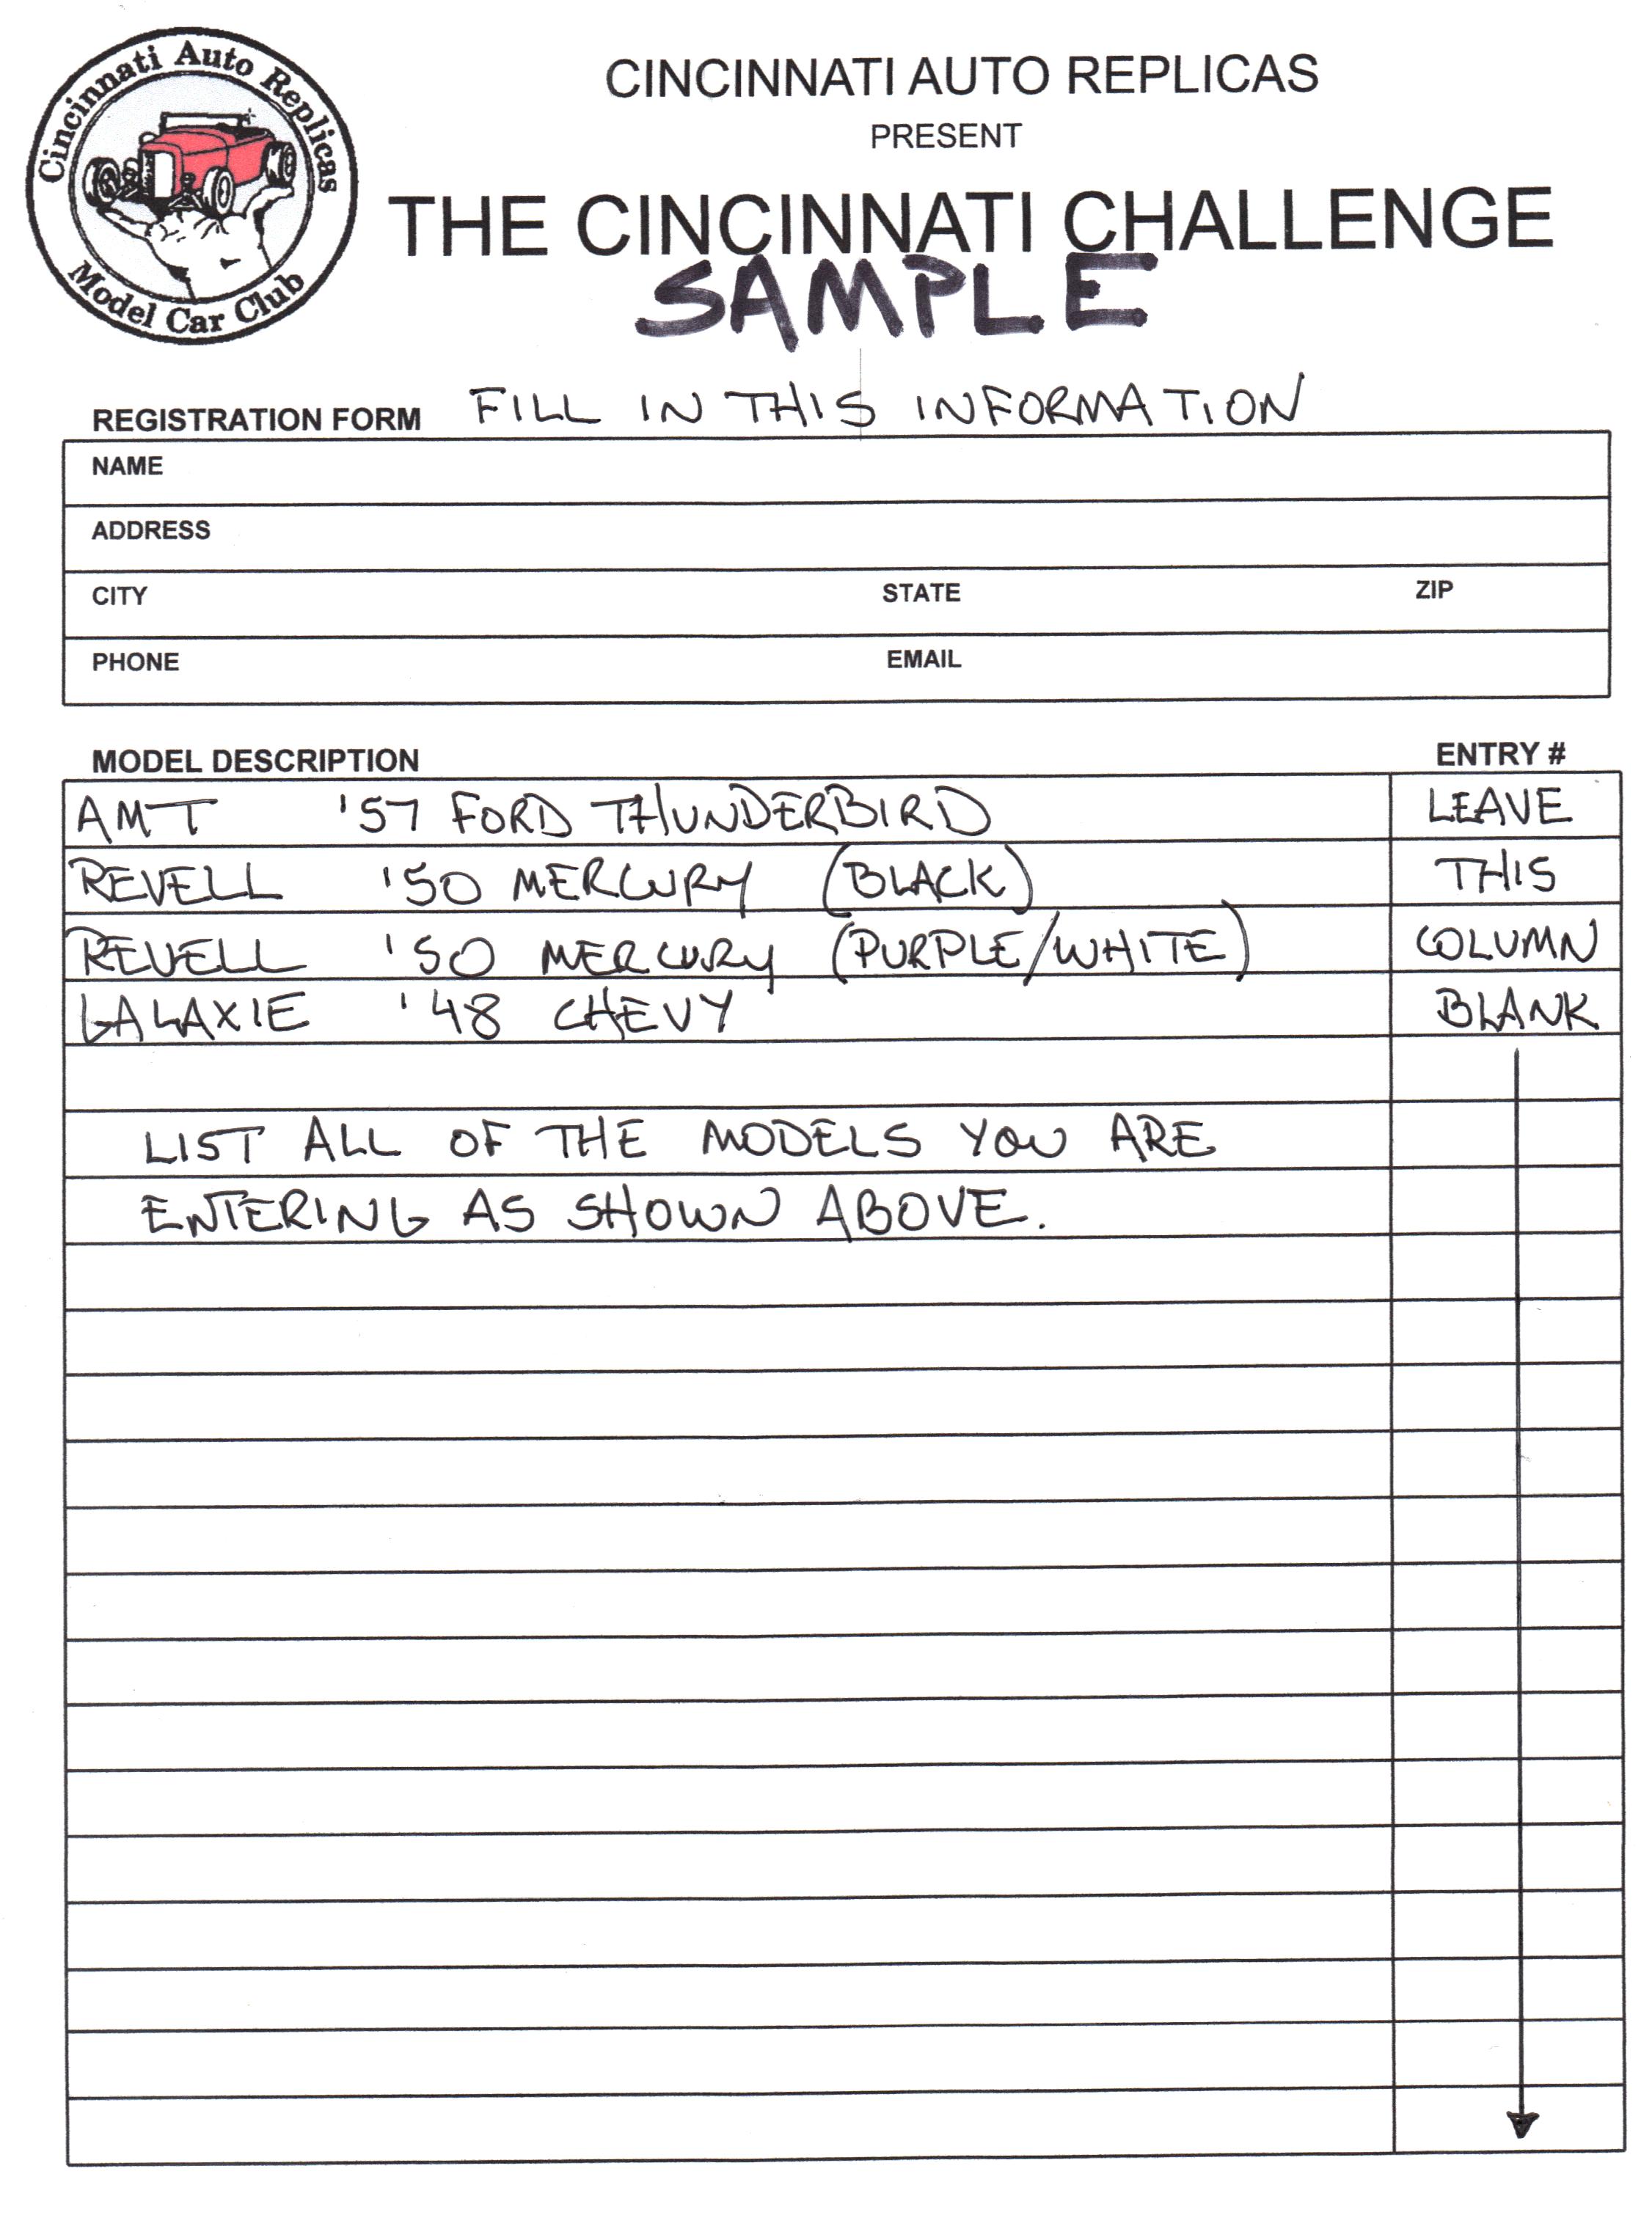 Cincinnati Auto Replicas
Model Car Club
CINCINNATI AUTO REPLICAS
PRESENT
THE CINCINNATI CHALLENGE
SAMPLE
REGISTRATION FORM FILL IN THIS INFORMATION
NAME
ADDRESS
CITY STATE ZIP
PHONE EMAIL
MODEL DESCRIPTION ENTRY #
AMT '57 FORD THUNDERBIRD LEAVE
REVELL '50 MERCURY (BLACK) THIS
REVELL '50 MERCURY (PURPLE/WHITE) COLUMN
GALAXIE '48 CHEVY BLANK
LIST ALL OF THE MODELS YOU ARE
ENTERING AS SHOWN ABOVE.